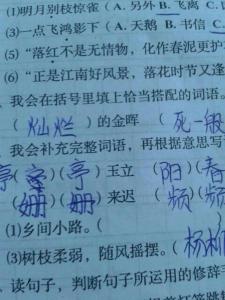 (1)明月别枝惊雀(A. 另外 B. 飞离 C.
(3)一点飞鸿影下(A. 天鹅 B. 书信 C.
(5)“落红不是无情物,化作春泥更护
(6)“正是江南好风景,落花时节又逢
我会在括号里填上恰当搭配的词语。
(灿烂)的金晖 (死一般
我会补充完整词语,再根据意思写
亭()(亭)玉立 (阳)(春
(姗)(姗)来迟 (频)(频
(1)乡间小路。(
(3)树枝柔弱,随风摇摆。(杨柳
读句子,判断句子所运用的修辞手